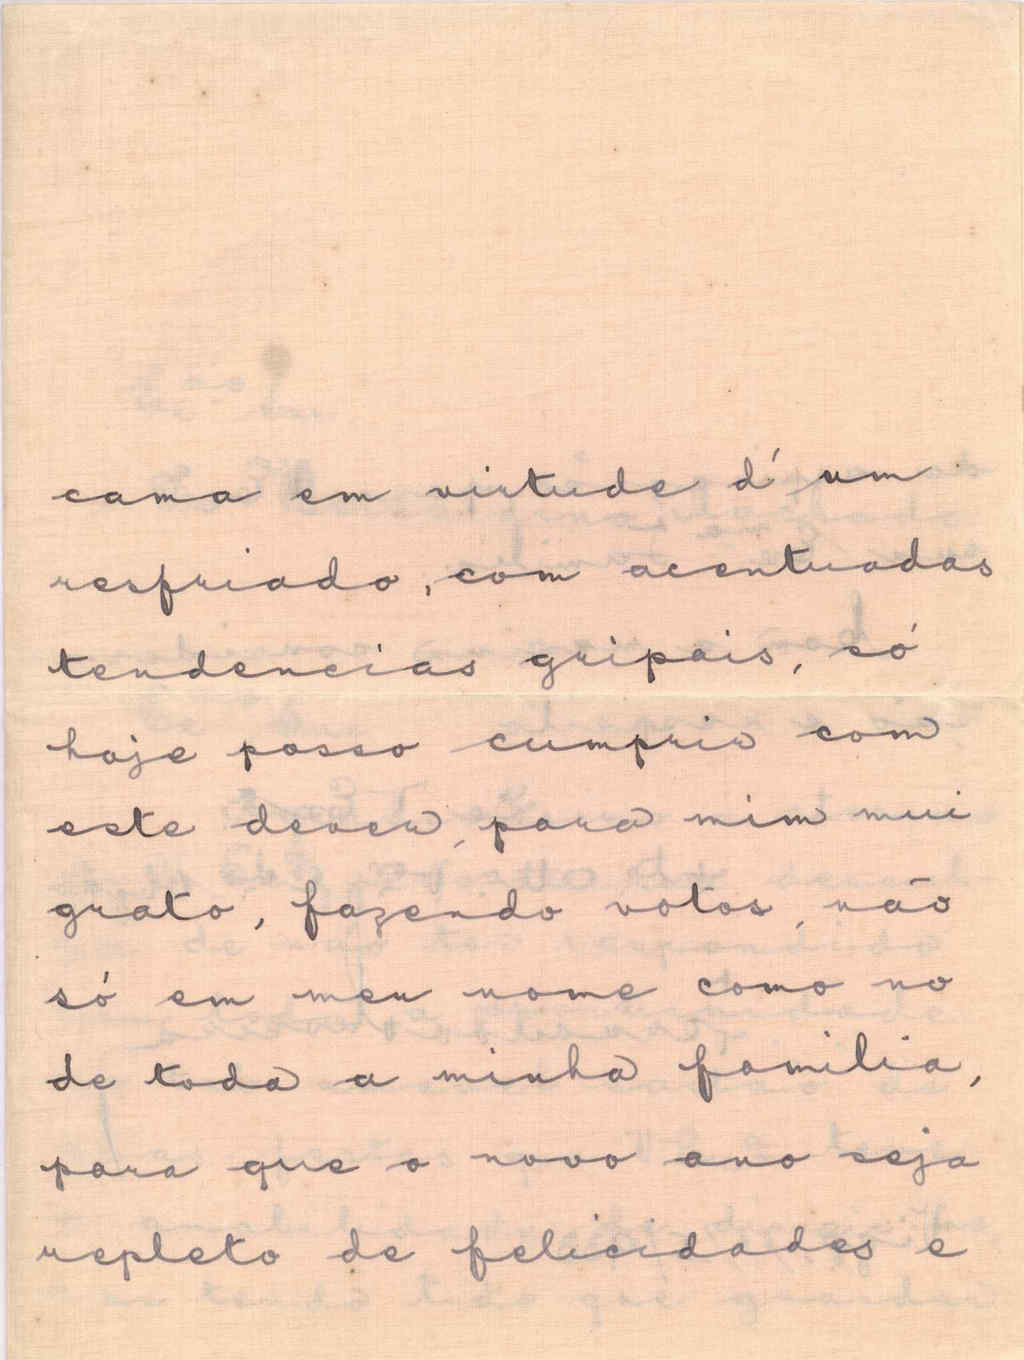 cama em virtude d'um
resfriado, com acentuadas
tendencias gripais, só
hoje posso cumprir com
este dever, para mim mui
grato, fazendo votos, não
só em meu nome como no
de toda a minha familia,
para que o novo ano seja
repleto de felicidades e